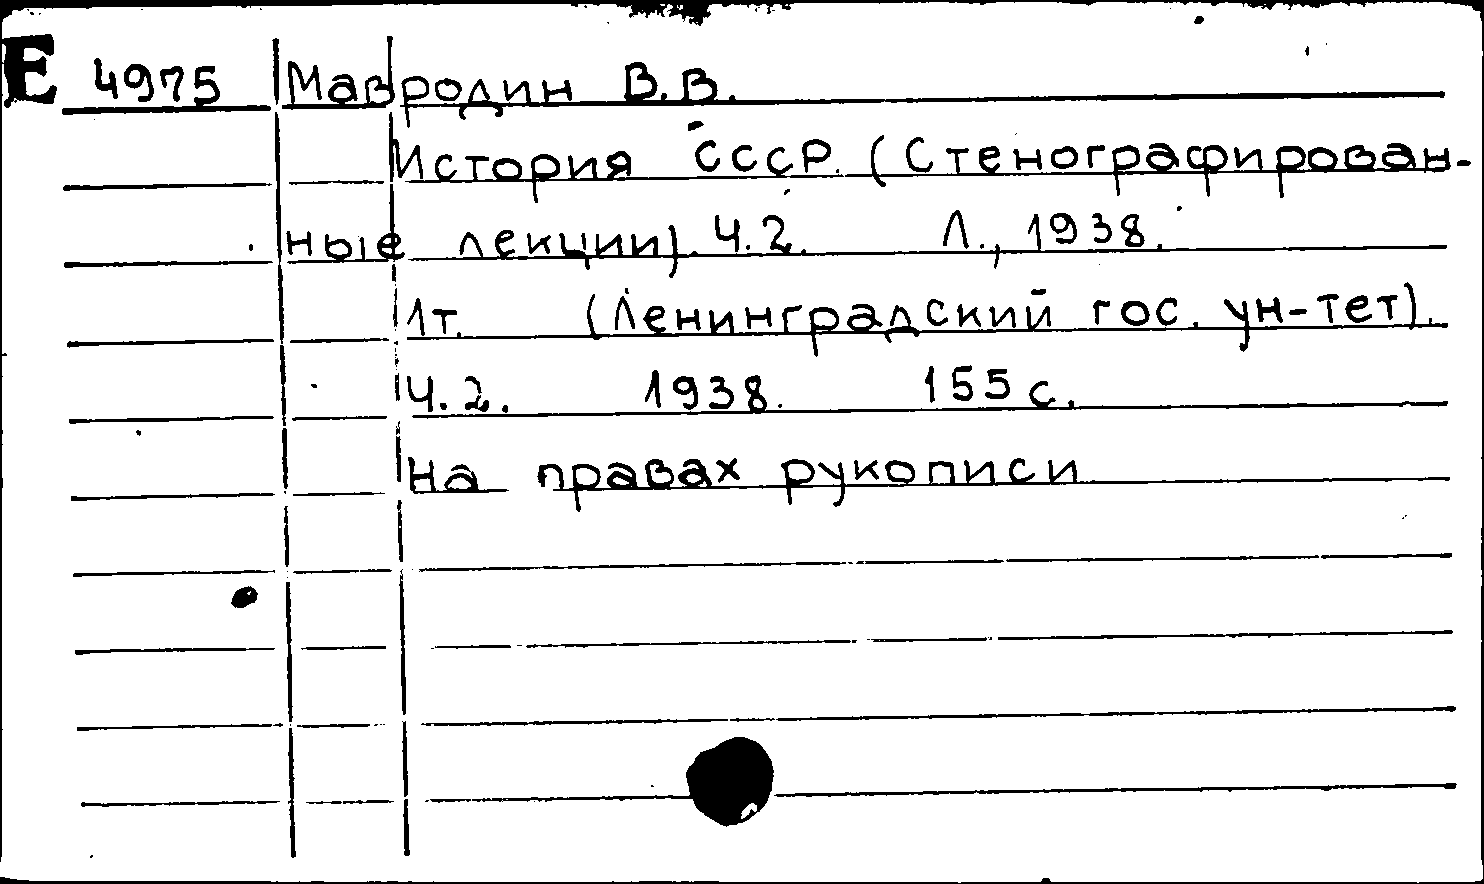 Е 4975 Мавродин В.В.
История СССР. (Стенографирован-
ные лекции). Ч.2. Л., 1938.
1т. (Ленинградский гос. ун-тет).
Ч.2. 1938. 155 с.
На правах рукописи